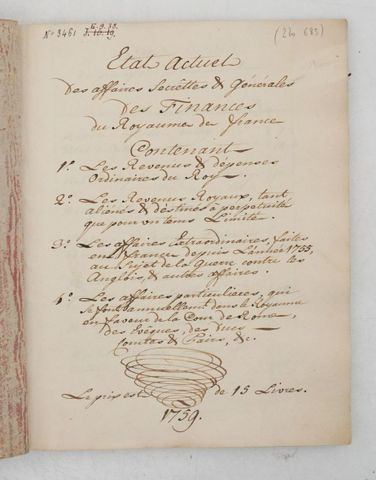 No 3461 6.9.38.
J. 16. 19.
(210 683)
Etat Actuel
Des affaires Secrettes & Générales
Des Finances
du Royaume de france
Contenant
1.º Les Revenus & dépenses
Ordinaires du Roy.
2.º Les Revenus Royaux, tant
aliénés & destinés à perpétuité
que pour un tems Limité.
3.º Les affaires Extraordinaires, faites
en france depuis l'année 1755,
au Sujet de la Guerre contre les
Anglois, & autres affaires.
4.º Les affaires particulieres, qui
se font annuellement dans le Royaume
en faveur de la Cour de Rome,
des Evêques, des Ducs
Comtes & Pairs, &c.
Le prix est de 15 Livres.
1759.